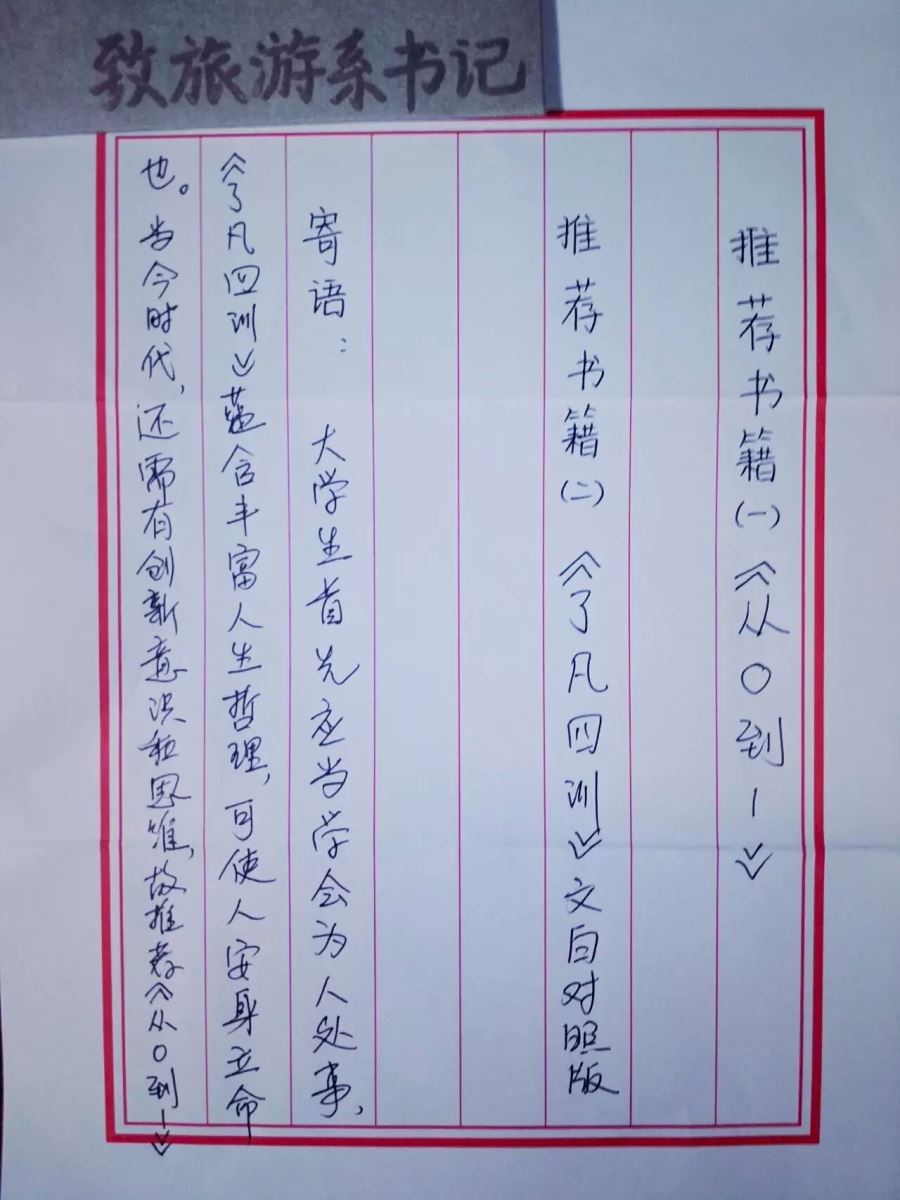 致旅游系书记
推荐书籍(一)《从0到1》
推荐书籍(二)《了凡四训》文白对照版
寄语：大学生首先应当学会为人处事，
《了凡四训》蕴含丰富人生哲理，可使人安身立命
也。当今时代，还需有创新意识和思维，故推荐《从0到1》